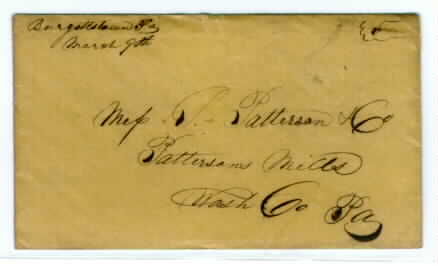 Burgettstown Pa
March 9th
5
Mess. P. Patterson & Co
Pattersons Mills
Wash Co Pa